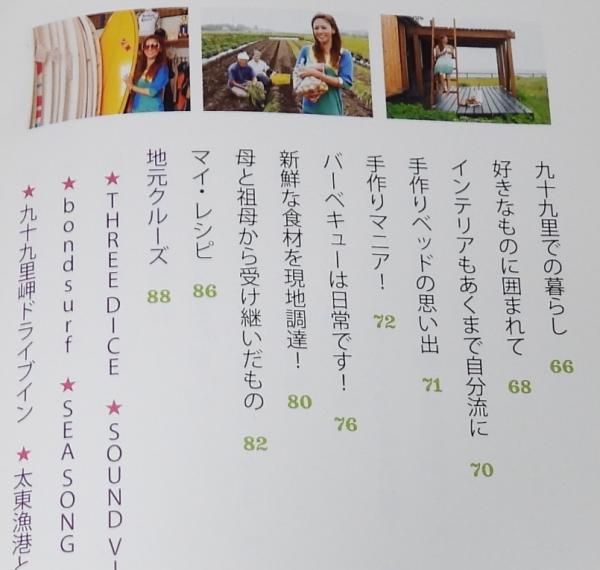 九十九里での暮らし 66
好きなものに囲まれて 68
インテリアもあくまで自分流に 70
手作りベッドの思い出 71
手作りマニア！ 72
バーベキューは日常です！ 76
新鮮な食材を現地調達！ 80
母と祖母から受け継いだもの 82
マイ・レシピ 86
地元クルーズ 88
★ THREE DICE ★ SOUND
★ bond surf ★ SEA SONG
★ 九十九里岬ドライブイン ★ 太東漁港と